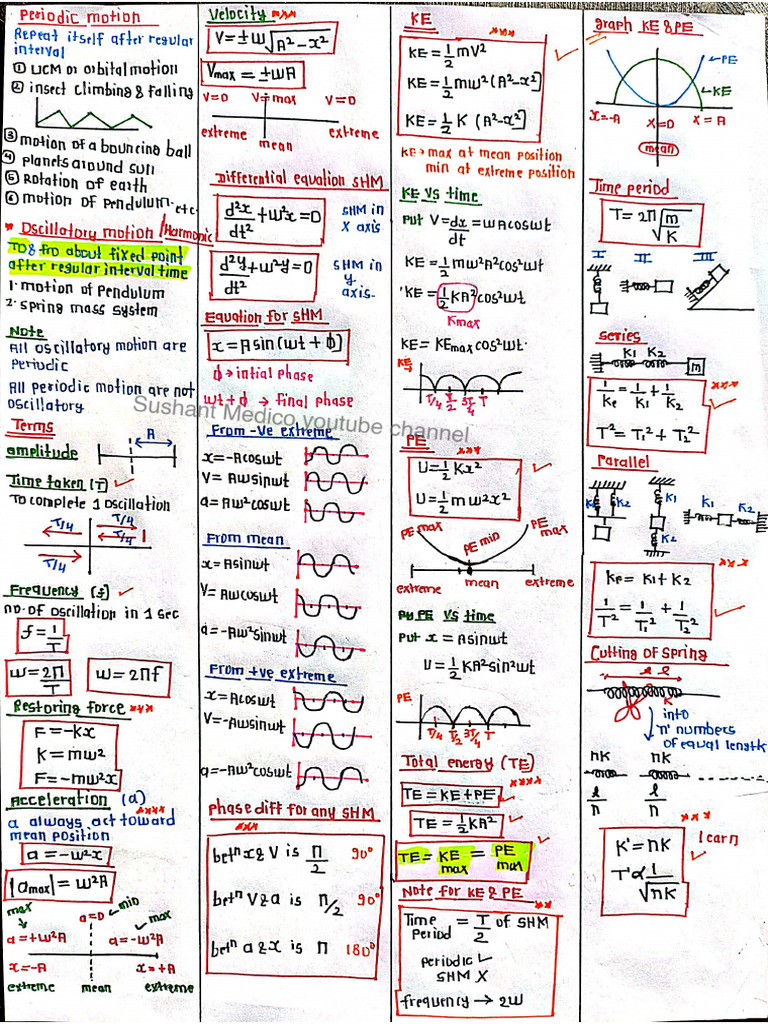 Periodic motion
Repeat itself after regular
interval
① UCM or orbital motion
② insect climbing & falling
③ motion of a bouncing ball
④ planets around sun
⑤ Rotation of earth
⑥ motion of Pendulum. etc.
* Oscillatory motion / Harmonic
TO & fro about fixed point
after regular interval time
1. motion of Pendulum
2. spring mass system
Note
All oscillatory motion are
Periodic
All Periodic motion are not
oscillatory
Terms
amplitude
A
Time taken (T)
To complete 1 oscillation
T/4 T/4
T/4
T/4
Frequency (f)
no. of oscillation in 1 sec
f = 1/T
ω = 2π/T
ω = 2πf
Restoring force ***
F = -kx
K = mω²
F = -mω²x
Acceleration (a)
a always act toward ****
mean position
a = -ω²x
|amax| = ω²A
max a=0 min max
a=+ω²A a=-ω²A
x=-A x=+A
extreme mean extreme
Velocity ***
V = ±ω√A²-x²
Vmax = ±ωA
V=0 V=max V=0
extreme mean extreme
Differential equation SHM
d²x/dt² + ω²x = 0
SHM in
X axis
d²y/dt² + ω²y = 0
SHM in
y
axis.
Equation for SHM
x = A sin(ωt + ϕ)
ϕ → intial phase
ωt + ϕ → final phase
Sushant Medico youtube channel
From -ve extreme
x = -Acosωt
V = Aωsinωt
a = Aω²cosωt
From mean
x = Asinωt
V = Aωcosωt
a = -Aω²sinωt
From +ve extreme
x = Acosωt
V = -Aωsinωt
a = -Aω²cosωt
Phase diff for any SHM
***
betⁿ x & V is π/2 90°
betⁿ V & a is π/2 90°
betⁿ a & x is π 180°
KE ***
KE = 1/2 mV²
KE = 1/2 mω² (A²-x²]
KE = 1/2 K (A²-x²]
KE → max at mean position
min at extreme position
KE VS time
Put V = dx/dt = ωAcosωt
KE = 1/2 mω²A²cos²ωt
KE = 1/2 KA² cos²ωt
Kmax
KE = KEmax cos²ωt.
KE
T/4 T/2 3T/4 T
PE ***
U = 1/2 Kx²
U = 1/2 mω²x²
PE max PE min PE max
extreme mean extreme
PE VS time
Put x = Asinωt
U = 1/2 KA²sin²ωt
PE
T/4 T/2 3T/4 T
Total energy (TE)
****
TE = KE + PE
TE = 1/2 KA²
TE = KE max = PE max
Note for KE & PE
**
Time Period = T/2 of SHM
periodic ✓
SHM X
frequency → 2ω
graph KE & PE
PE
KE
x=-A x=0 x=A
mean
Time period
T = 2π√m/K
I II III
series
K1 K2
m
1/Kp = 1/K1 + 1/K2 ***
T² = T1² + T2²
Parallel
K1 K2 K1 K1 K2
K2
***
Kp = K1 + K2
1/T² = 1/T1² + 1/T2²
Cutting of Spring
l
K
into
'n' numbers
of equal length
nK nK
l/n l/n
***
K' = nK
T' α 1/√nK
learn